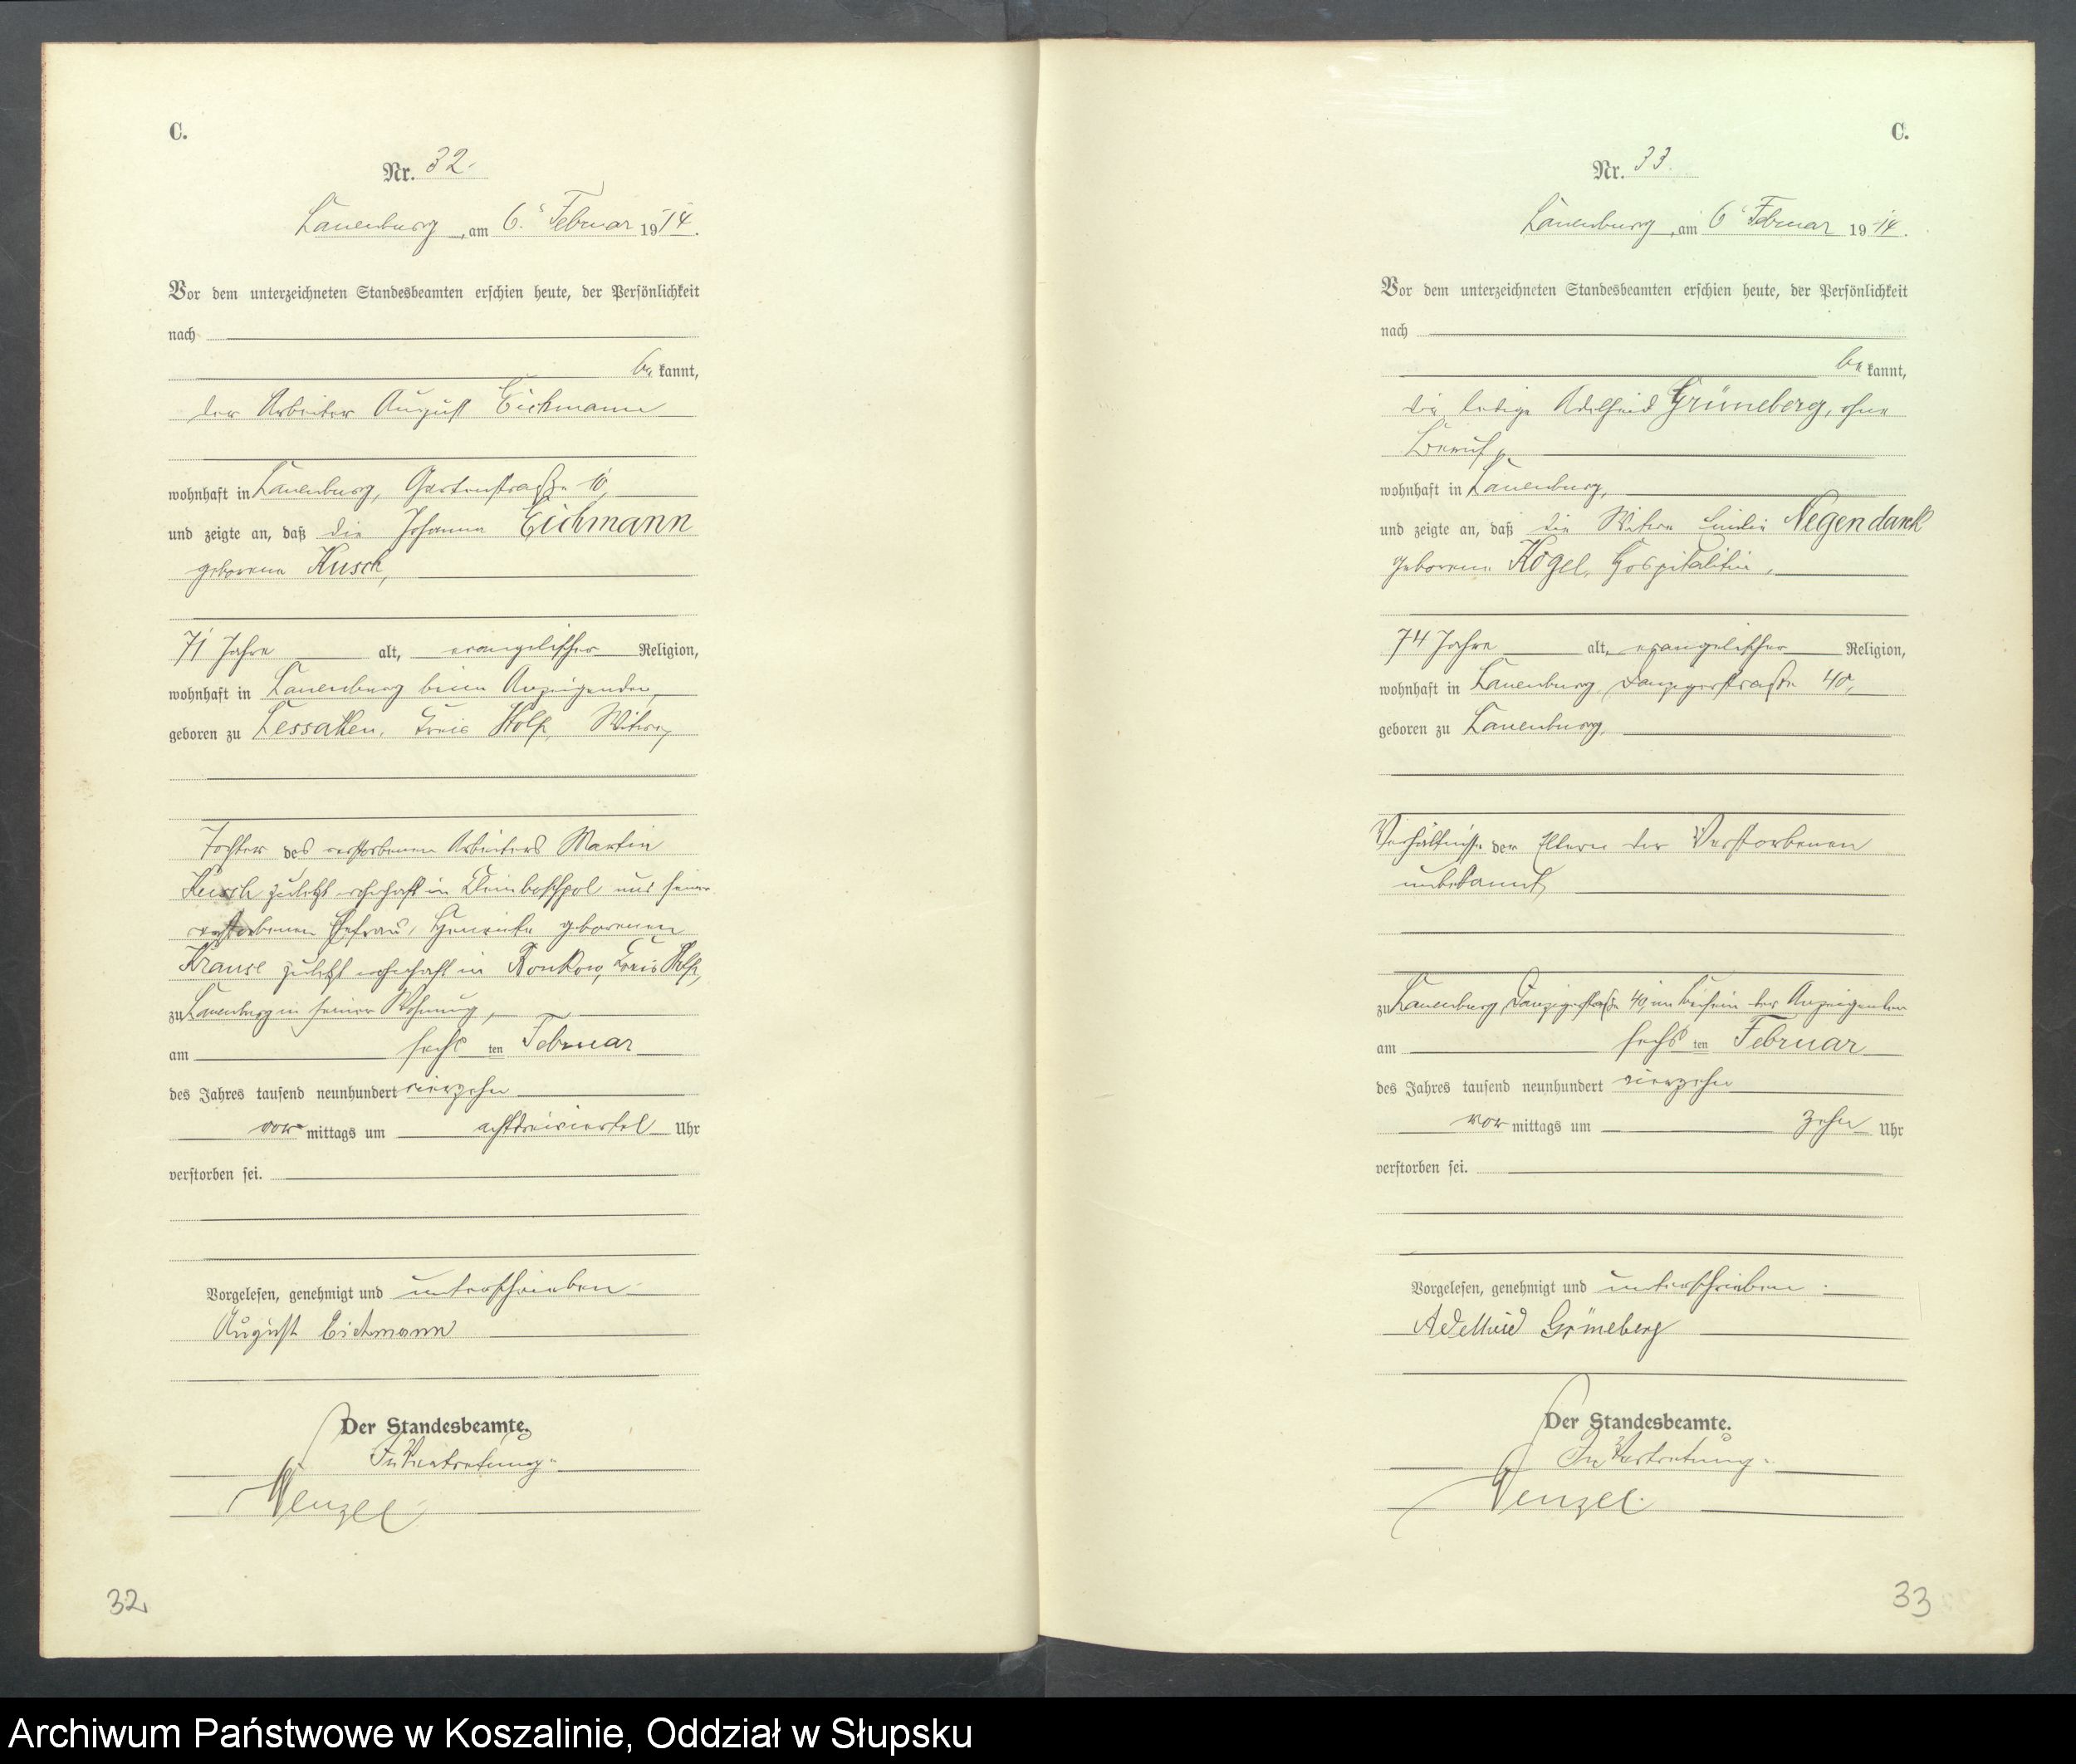 C.
Nr. 32.
Lauenburg, am 6. Februar 1914.
Vor dem unterzeichneten Standesbeamten erschien heute, der Persönlichkeit
nach
be kannt,
der Arbeiter August Eichmann
wohnhaft in Lauenburg, Gartenstraße 10,
und zeigte an, daß die Johanna Eichmann
geborene Kusch,
71 Jahre alt, evangelischer Religion,
wohnhaft in Lauenburg beim Anzeigenden,
geboren zu Lessaken, Kreis Stolp, Witwe,
Tochter des verstorbenen Arbeiters Martin
Kusch zuletzt wohnhaft in Kleinboschpol und seiner
verstorbenen Ehefrau, geborenen
Krause zuletzt wohnhaft in Kreis Stolp,
zu Lauenburg in seiner Wohnung,
am sechs ten Februar
des Jahres tausend neunhundert vierzehn
vor mittags um achtdreiviertel Uhr
verstorben sei.
Vorgelesen, genehmigt und unterschrieben
August Eichmann
Der Standesbeamte.
In Vertretung.
Wenzel
32
C.
Nr. 33.
Lauenburg, am 6. Februar 1914.
Vor dem unterzeichneten Standesbeamten erschien heute, der Persönlichkeit
nach
be kannt,
die ledige Adelheid Grüneberg, ohne
Beruf,
wohnhaft in Lauenburg,
und zeigte an, daß die Witwe Negendank
geborene Kogel, Hospitalitin,
74 Jahre alt, evangelischer Religion,
wohnhaft in Lauenburg Danzigerstraße 40,
geboren zu Lauenburg,
Verhältnisse der Eltern der Verstorbenen
unbekannt,
zu Lauenburg, Danzigerstraße 40, im Beisein der Anzeigenden
am sechs ten Februar
des Jahres tausend neunhundert vierzehn
vor mittags um zehn Uhr
verstorben sei.
Vorgelesen, genehmigt und unterschrieben.
Adelheid Grüneberg
Der Standesbeamte.
In Vertretung.
Wenzel.
33
Archiwum Państwowe w Koszalinie, Oddział w Słupsku